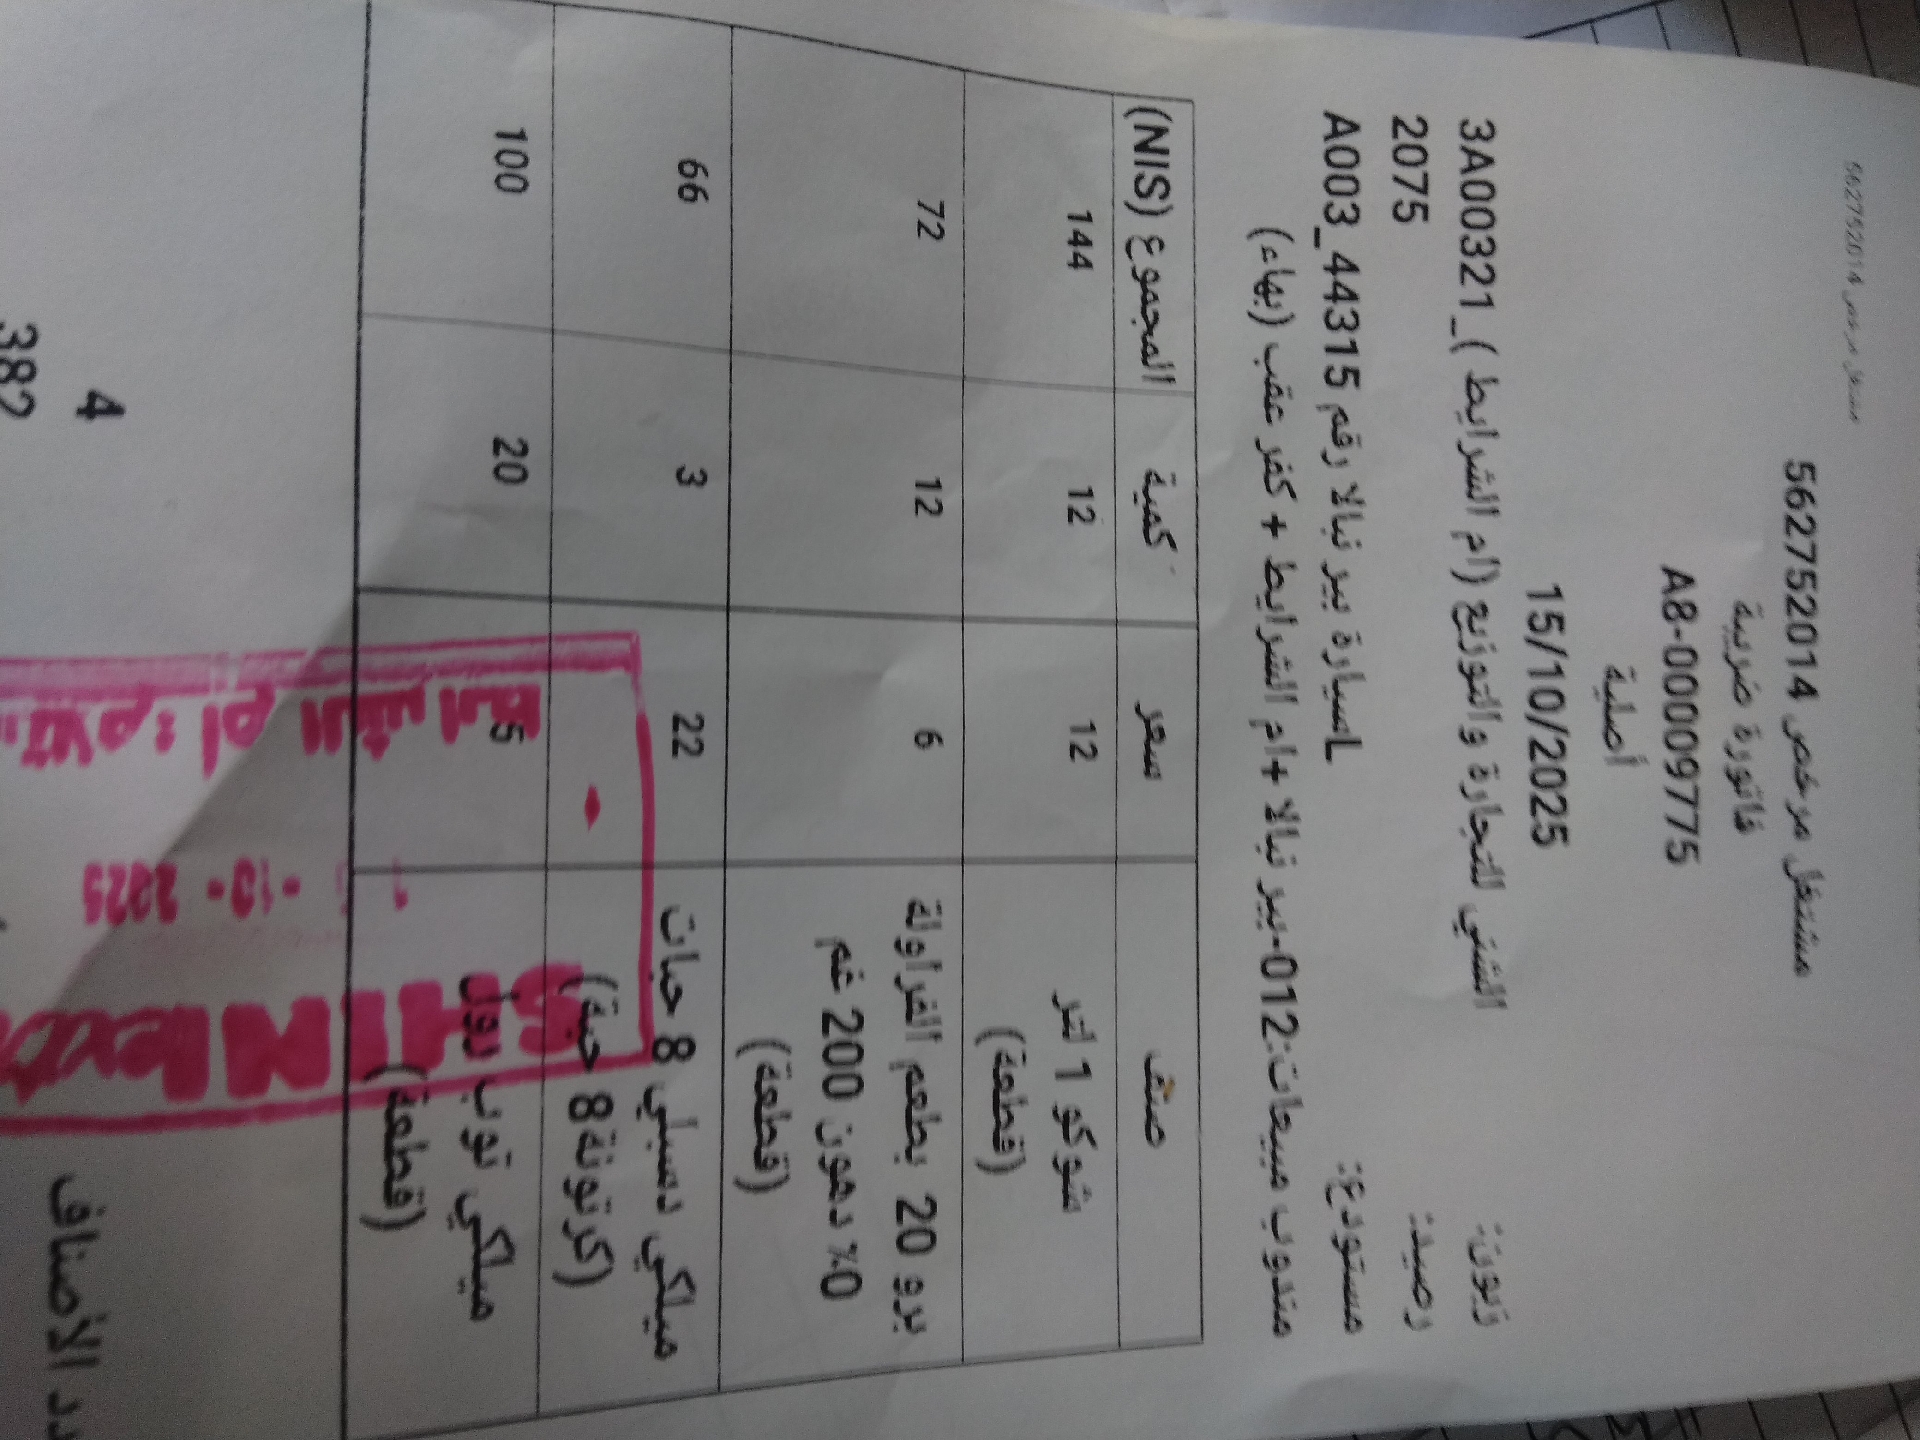 مشتغل مرخص 562752014
مشتغل مرخص 562752014
فاتورة ضريبة
A8-000009775
أصلية
15/10/2025
زبون: 3A00321_( الشني للتجارة والتوزيع (ام الشرايط
رصيد: 2075
مستودع: A003_44315 سيارة بير نبالا رقم
مندوب مبيعات:012-بير نبالا +ام الشرايط + كفر عقب (بهاء)
صنف سعر كمية المجموع (NIS)
شوكو 1 لتر (قطعة) 12 12 144
برو 20 بطعم الفراولة 0% دهون 200 غم (قطعة) 6 12 72
ميلكي دسبلي 8 حبات (كرتونة8 حبة) 22 3 66
ميلكي توب رول (قطعة) 5 20 100
الأصناف 4
382
ام الشرايط
2025